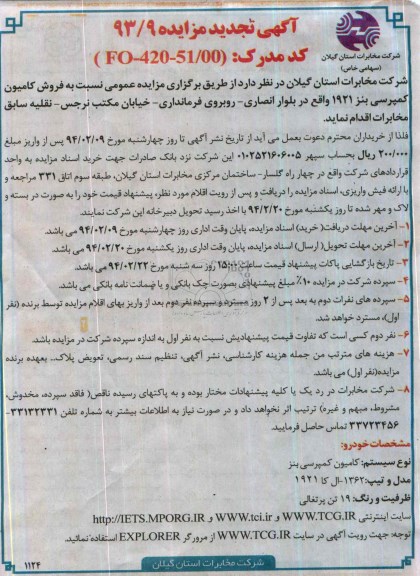 آگهی تجدید مزایده ۹۳/۹
کد مدرک: (FO-420-51/00 )
شرکت مخابرات استان گیلان
(سهامی خاص)
شرکت مخابرات استان گیلان در نظر دارد از طریق برگزاری مزایده عمومی نسبت به فروش کامیون
کمپرسی بنز ۱۹۲۱ واقع در بلوار انصاری- روبروی فرمانداری- خیابان مکتب نرجس- نقلیه سابق
مخابرات اقدام نماید.
فلذا از خریداران محترم دعوت بعمل می آید از تاریخ نشر آگهی تا روز چهارشنبه مورخ ۹۴/۰۲/۰۹ پس از واریز مبلغ
۲۰۰/۰۰۰ ریال بحساب سپهر ۰۱۰۲۵۲۱۶۰۶۰۰۵ این شرکت نزد بانک صادرات جهت خرید اسناد مزایده به واحد
قراردادهای شرکت واقع در چهار راه گلسار- ساختمان مرکزی مخابرات استان گیلان، طبقه سوم اتاق ۳۳۱ مراجعه و
با ارائه فیش واریزی، اسناد مزایده را دریافت و پس از رویت اقلام مورد نظر، پیشنهاد قیمت خود را به صورت در بسته و
لاک و مهر شده تا روز یکشنبه مورخ ۹۴/۲/۲۰ با اخذ رسید تحویل دبیرخانه این شرکت نمایند.
۱- آخرین مهلت دریافت( خرید) اسناد مزایده، پایان وقت اداری روز چهارشنبه مورخ ۹۴/۰۲/۰۹ می باشد.
۲- آخرین مهلت تحویل( ارسال) اسناد مزایده، پایان وقت اداری روز یکشنبه مورخ ۹۴/۰۲/۲۰ می باشد.
۳- تاریخ بازگشایی پاکات پیشنهاد قیمت ساعت ۱۵:۰۰ روز سه شنبه مورخ ۹۴/۰۲/۲۲ می باشد.
۴- سپرده شرکت در مزایده ۱۰٪ مبلغ پیشنهادی بصورت چک بانکی و یا ضمانت نامه بانکی می باشد.
۵- سپرده های نفرات دوم به بعد پس از ۲ روز مسترد و سپرده نفر دوم بعد از واریز بهای اقلام مزایده توسط برنده (نفر
اول)، مسترد خواهد شد.
۶- نفر دوم کسی است که تفاوت قیمت پیشنهادیش نسبت به نفر اول به اندازه سپرده شرکت در مزایده باشد.
۷- هزینه های مترتب من جمله هزینه کارشناسی، نشر آگهی، تنظیم سند رسمی، تعویض پلاک،.. بعهده برنده
مزایده(نفر اول) می باشد.
۸- شرکت مخابرات در رد یک یا کلیه پیشنهادات مختار بوده و به پاکتهای رسیده ناقص( فاقد سپرده، مخدوش،
مشروط، مبهم و غیره) ترتیب اثر نخواهد داد و در صورت نیاز به اطلاعات بیشتر به شماره تلفن ۳۳۱۳۲۳۳۱-
۳۳۷۲۳۴۵۶ تماس حاصل فرمایید.
مشخصات خودرو:
نوع سیستم: کامیون کمپرسی بنز
مدل و تیپ:۱۳۶۲-ال کا ۱۹۲۱
ظرفیت و رنگ: ۱۹ تن پرتغالی
سایت اینترنتی WWW.TCG.IR و WWW.tci.ir و http://IETS.MPORG.IR
توجه: جهت رویت آگهی در سایت WWW.TCG.IR از مرورگر EXPLORER استفاده نمائید.
شرکت مخابرات استان گیلان
۱۱۲۴